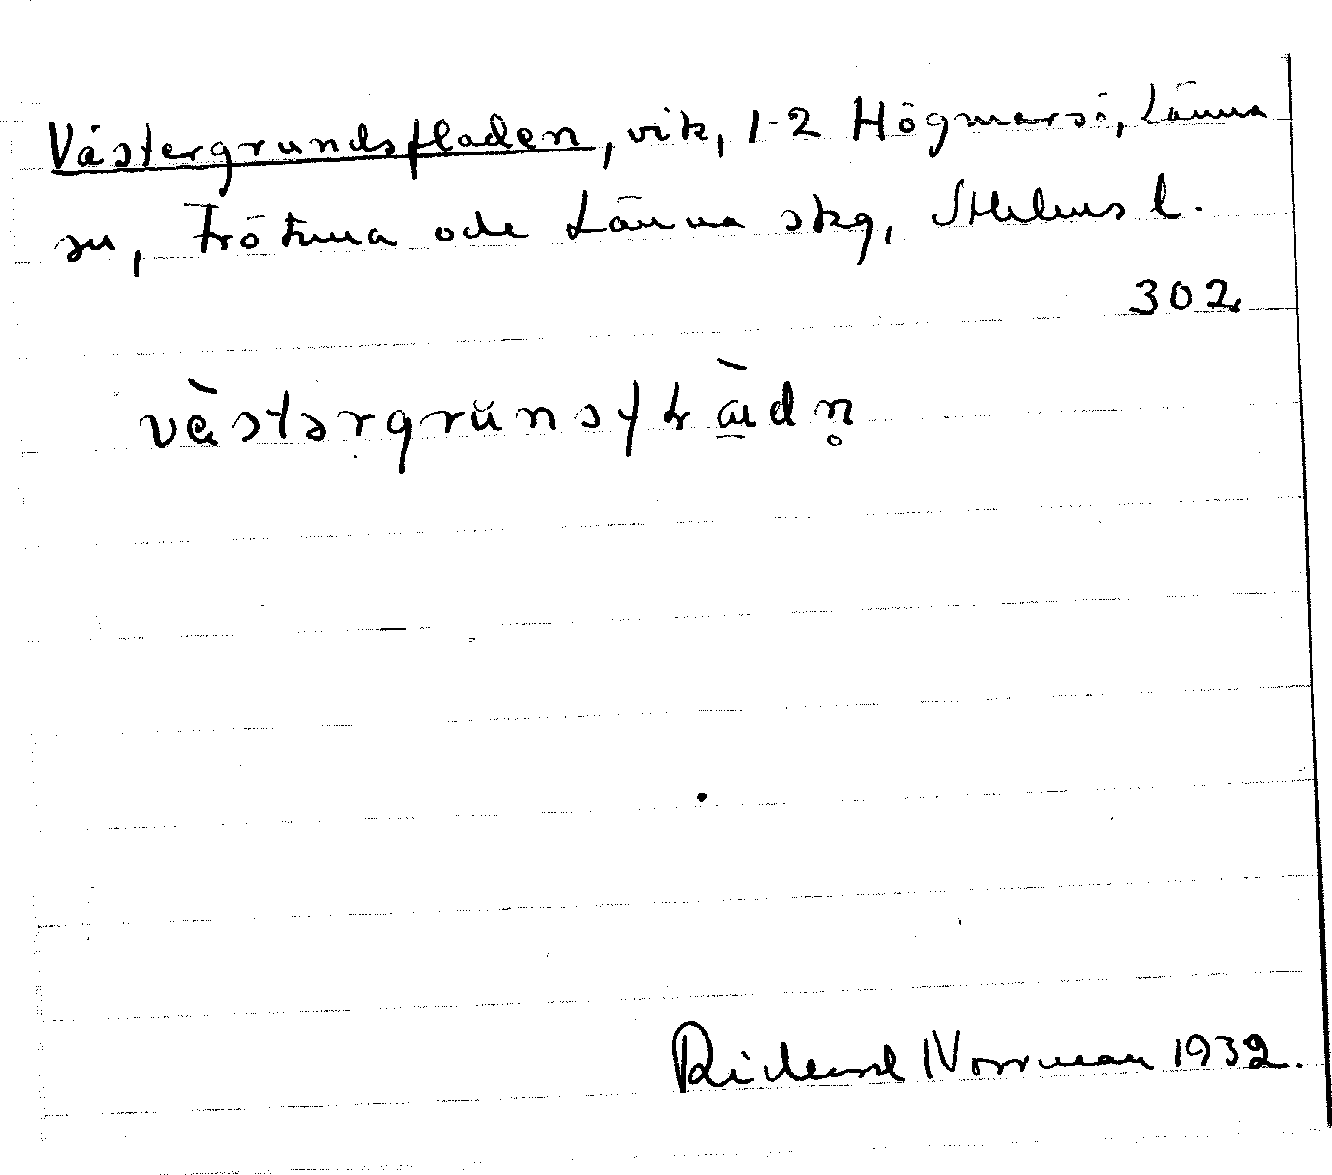 Västergrundsfladen, vik, 1-2 Högmarsö, Länna
sn, Frötuna och Länna skg, Sthlms l.
302
vàstərgrŭnsfLàdn̥
Rickard Norrman 1932.